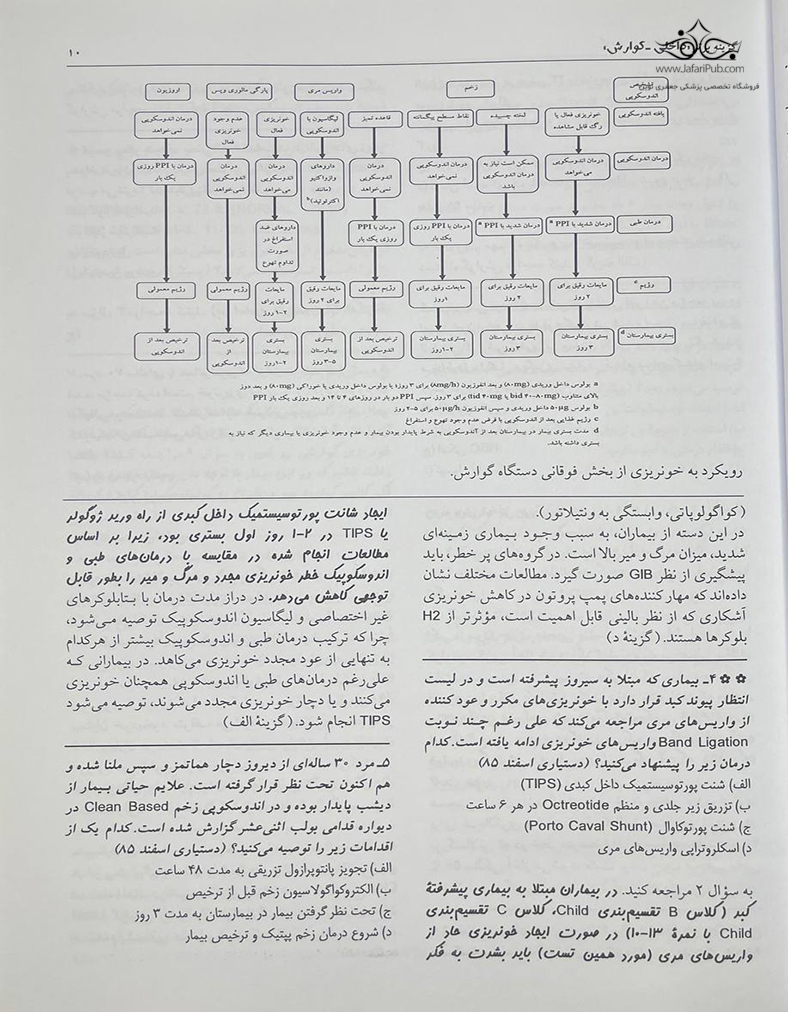 ۱۰
گزینه برتر «داخلی ـ گوارش»
www.JafariPub.com
فروشگاه تخصصی پزشکی جعفری نوین
تشخیص اندوسکوپی
زخم
واریس مری
پارگی مالوری ویس
اروزیون
یافته اندوسکوپی
خونریزی فعال یا
رگ قابل مشاهده
لخته چسبیده
نقاط مسطح پیگمانته
قاعده تمیز
لیگاسیون با
اندوسکوپی
خونریزی
فعال
عدم وجود
خونریزی
فعال
درمان اندوسکوپی
نمی‌خواهد
درمان اندوسکوپی
درمان اندوسکوپی
می‌خواهد
ممکن است نیاز به
درمان اندوسکوپی
باشد
درمان اندوسکوپی
نمی‌خواهد
درمان
اندوسکوپی
نمی‌خواهد
داروهای
وازواکتیو
(مانند
اکترئوتید)b
درمان
اندوسکوپی
می‌خواهد
درمان
اندوسکوپی
نمی‌خواهد
درمان با PPI روزی
یک بار
درمان طبی
درمان شدید با PPI a
درمان شدید با PPI a
درمان با PPI روزی
یک بار
درمان با PPI
روزی یک بار
داروهای ضد
استفراغ در
صورت
تداوم تهوع
رژیم c
مایعات رقیق برای
۲ روز
مایعات رقیق برای
۲ روز
مایعات رقیق برای
۱ روز
رژیم معمولی
مایعات رقیق
برای ۲ روز
مایعات
رقیق برای
۱-۲ روز
رژیم معمولی
رژیم معمولی
بستری بیمارستان d
بستری بیمارستان
۳ روز
بستری بیمارستان
۳ روز
بستری بیمارستان
۱-۲ روز
ترخیص بعد از
اندوسکوپی
بستری
بیمارستان
۳-۵ روز
بستری
بیمارستان
۱-۲ روز
ترخیص بعد
از
اندوسکوپی
ترخیص بعد از
اندوسکوپی
a بولوس داخل وریدی (۸۰mg) و بعد انفوزیون (۸mg/h) برای ۳ روزه یا بولوس داخل وریدی یا خوراکی (۸۰mg) و بعد دوز
بالای متناوب (۴۰-۸۰mg bid یا ۴۰mg tid) برای ۳ روز. سپس PPI دو بار در روزهای ۴ تا ۱۴ و بعد روزی یک بار PPI
b بولوس ۵۰µg داخل وریدی و سپس انفوزیون ۵۰µg/h برای ۵-۲ روز
c رژیم غذایی بعد از اندوسکوپی با فرض عدم وجود تهوع و استفراغ
d مدت بستری بیمار در بیمارستان بعد از آندوسکوپی به شرط پایدار بودن بیمار و عدم وجود خونریزی یا بیماری دیگر که نیاز به
بستری داشته باشد.
رویکرد به خونریزی از بخش فوقانی دستگاه گوارش.
(کواگولوپاتی، وابستگی به ونتیلاتور).
در این دسته از بیماران، به سبب وجود بیماری زمینه‌ای
شدید، میزان مرگ و میر بالا است. در گروه‌های پر خطر، باید
پیشگیری از نظر GIB صورت گیرد. مطالعات مختلف نشان
داده‌اند که مهار کننده‌های پمپ پروتون در کاهش خونریزی
آشکاری که از نظر بالینی قابل اهمیت است، مؤثرتر از H2
بلوکرها هستند. (گزینهٔ د)
✿ ✿ ۴ـ بیماری که مبتلا به سیروز پیشرفته است و در لیست
انتظار پیوند کبد قرار دارد با خونریزی‌های مکرر و عود کننده
از واریس‌های مری مراجعه می‌کند که علی رغم چند نوبت
Band Ligation واریس‌های خونریزی ادامه یافته است. کدام
درمان زیر را پیشنهاد می‌کنید؟ (دستیاری اسفند ۸۵)
الف) شنت پورتوسیستمیک داخل کبدی (TIPS)
ب) تزریق زیر جلدی و منظم Octreotide در هر ۶ ساعت
ج) شنت پورتوکاوال (Porto Caval Shunt)
د) اسکلروتراپی واریس‌های مری
به سؤال ۲ مراجعه کنید. در بیماران مبتلا به بیماری پیشرفتهٔ
کبد (کلاس B تقسیم‌بندی Child، کلاس C تقسیم‌بندی
Child با نمرهٔ ۱۳-۱۰) در صورت ایجاد خونریزی حاد از
واریس‌های مری (مورد همین تست) باید بشدت به فکر
ایجاد شانت پورتوسیستمیک داخل کبدی از راه ورید ژوگولر
یا TIPS در ۲-۱ روز اول بستری بود، زیرا بر اساس
مطالعات انجام شده در مقایسه با درمان‌های طبی و
اندوسکوپیک خطر خونریزی مجدد و مرگ و میر را بطور قابل
توجهی کاهش می‌دهد. در دراز مدت درمان با بتابلوکرهای
غیر اختصاصی و لیگاسیون اندوسکوپیک توصیه می‌شود،
چرا که ترکیب درمان طبی و اندوسکوپیک بیشتر از هرکدام
به تنهایی از عود مجدد خونریزی می‌کاهد. در بیمارانی که
علی‌رغم درمان‌های طبی یا اندوسکوپی همچنان خونریزی
می‌کنند و یا دچار خونریزی مجدد می‌شوند، توصیه می‌شود
TIPS انجام شود. (گزینهٔ الف)
۵ـ مرد ۳۰ ساله‌ای از دیروز دچار هماتمز و سپس ملنا شده و
هم اکنون تحت نظر قرار گرفته است. علایم حیاتی بیمار از
دیشب پایدار بوده و در اندوسکوپی زخم Clean Based در
دیواره قدامی بولب اثنی‌عشر گزارش شده است. کدام یک از
اقدامات زیر را توصیه می‌کنید؟ (دستیاری اسفند ۸۵)
الف) تجویز پانتوپرازول تزریقی به مدت ۴۸ ساعت
ب) الکتروکواگولاسیون زخم قبل از ترخیص
ج) تحت نظر گرفتن بیمار در بیمارستان به مدت ۳ روز
د) شروع درمان زخم پپتیک و ترخیص بیمار